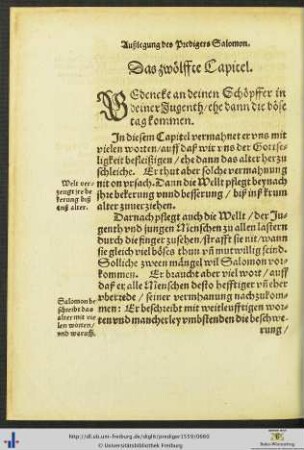 Außlegung des Predigers Salomon.
Das zwölffte Capitel.
BEdencke an deinen Schöpffer in
deiner Jugenth / ehe dann die böse
tag kommen.
In diesem Capitel vermahnet er vns mit
vielen worten / auff daß wir vns der Gottse-
ligkeit befleißigen / ehe dann das alter herzu
schleiche. Er thut aber solche vermahnung
nit on vrsach. Dann die Wellt pflegt beynach
jhre bekerung vnnd besserung / biß inß krum
alter zuuerziehen.
Darnach pflegt auch die Wellt / der Ju-
genth vnd jungen Menschen zu allen lastern
durch die finger zusehen / strafft sie nit / wann
sie gleich viel böses thun vnd mutwillig seind.
Sölliche zween mängel wil Salomon vor-
kommen. Er braucht aber viel wort / auff
daß er alle Menschen desto hefftiger vnd eher
vberrede / seiner vermhanung nachzukom-
men: Er beschreibt mit weitleufftigen wor-
ten vnd mancherley vmbstenden die beschwe-
rung /
Welt ver-
zeugt jre be
kerung biß
inß alter.
Salomon be
schreibt das
alter mit vie
len worten /
vnd waruff.
http://dl.ub.uni-freiburg.de/diglit/prediger1559/0660
© Universitätsbibliothek Freiburg